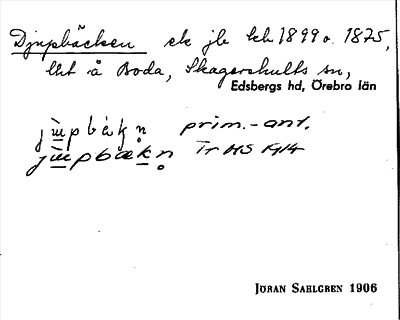 Djupbäcken ek jb kb 1899 o. 1875,
lht å Boda, Skagershults sn,
Edsbergs hd, Örebro län
prim.-ant.
Tr HS 1914
JÖRAN SAHLGREN 1906